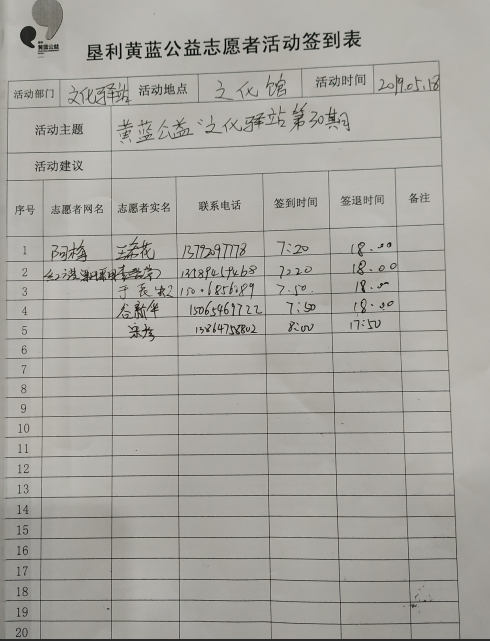 黄蓝公益
垦利黄蓝公益志愿者活动签到表
活动部门 文化驿站 活动地点 文化馆 活动时间 2019.05.18
活动主题 黄蓝公益"文化驿站第30期
活动建议
序号 志愿者网名 志愿者实名 联系电话 签到时间 签退时间 备注
1 阿梅 13792097778 7:20 18.00
2 13789459468 7:20 18.00
3 15006856189 7.50. 18.00
4 谷新华 15065469722 7:50 18.00
5 13864758802 8:00 17:50
6
7
8
9
10
11
12
13
14
15
16
17
18
19
20